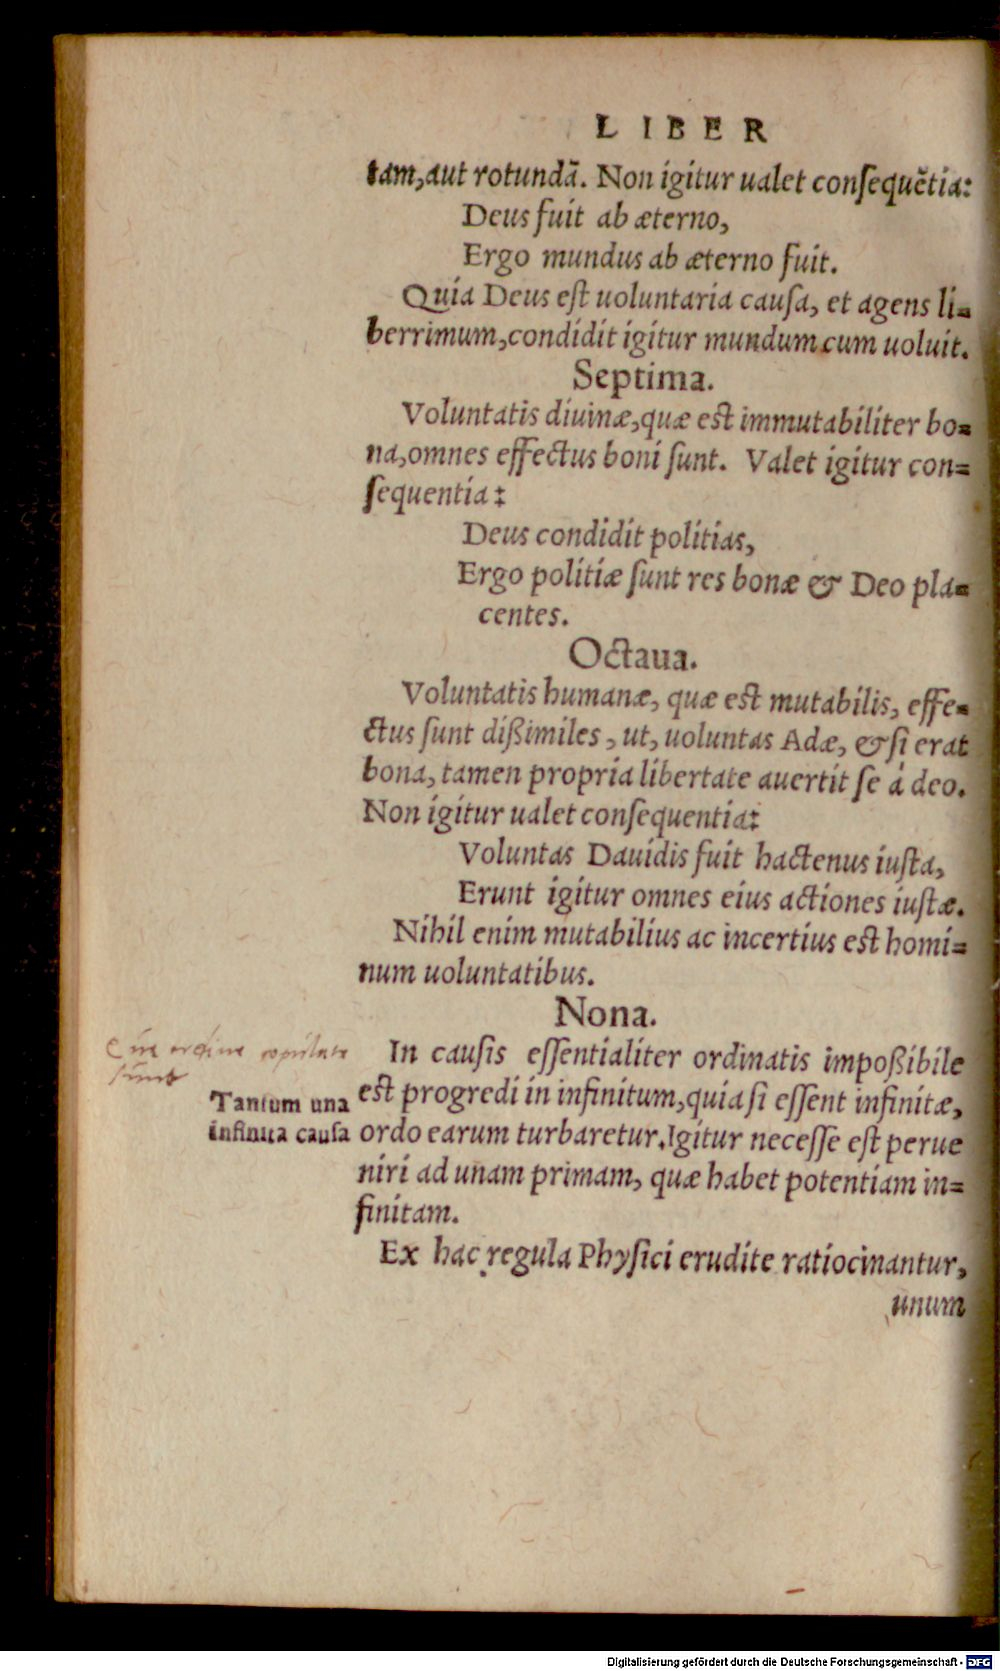 LIBER
tam, aut rotundã. Non igitur ualet consequẽtia:
Deus fuit ab æterno,
Ergo mundus ab æterno fuit.
Quia Deus est uoluntaria causa, et agens li=
berrimum, condidit igitur mundum cum uoluit.
Septima.
Voluntatis diuinæ, quæ est immutabiliter bo=
na, omnes effectus boni sunt. Valet igitur con=
sequentia:
Deus condidit politias,
Ergo politiæ sunt res bonæ & Deo pla=
centes.
Octaua.
Voluntatis humanæ, quæ est mutabilis, effe=
ctus sunt dißimiles, ut, uoluntas Adæ, & si erat
bona, tamen propria libertate auertit se à deo.
Non igitur ualet consequentia:
Voluntas Dauidis fuit hactenus iusta,
Erunt igitur omnes eius actiones iustæ.
Nihil enim mutabilius ac incertius est homi=
num uoluntatibus.
Nona.
ordine copulate
sunt
Tantum una
infinita causa
In causis essentialiter ordinatis impoßibile
est progredi in infinitum, quia si essent infinitæ,
ordo earum turbaretur. Igitur necesse est perue
niri ad unam primam, quæ habet potentiam in=
finitam.
Ex hac regula Physici erudite ratiocinantur,
unum
Digitalisierung gefördert durch die Deutsche Forschungsgemeinschaft - DFG